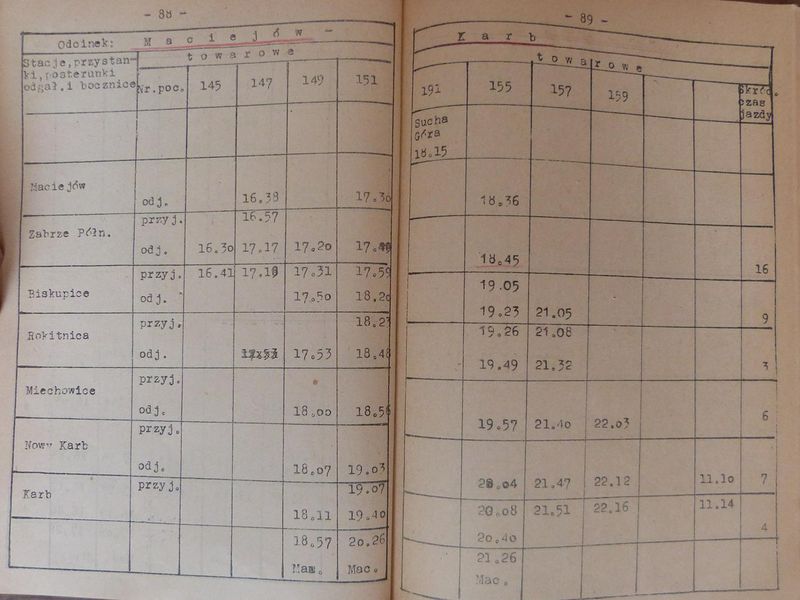 - 88 -
Odcinek: M a c i e j ó w -
Stacje,przystan-
ki,posterunki
odgał.i bocznice
t o w a r o w e
Nr.poc. 145 147 149 151
Maciejów
odj. 16.38 17.30
przyj. 16.57
Zabrze Półn.
odj. 16.30 17.17 17.20
przyj. 16.41 17.31 17.59
Biskupice
odj. 17.50 18.20
przyj. 18.23
Rokitnica
odj. 17.53 18.48
przyj.
Miechowice
odj. 18.00 18.56
przyj.
Nowy Karb
odj. 18.07 19.03
Karb przyj. 19.07
18.11 19.40
18.57 20.26
Mac.
- 89 -
K a r b
t o w a r o w e
191 155 157 159
Skróc.
czas
jazdy
Sucha
Góra
18.15
18.36
18.45 16
19.05
19.23 21.05 9
19.26 21.08
19.49 21.32 3
19.57 21.40 22.03 6
20.04 21.47 22.12 11.10 7
20.08 21.51 22.16 11.14
20.40 4
21.26
Mac.